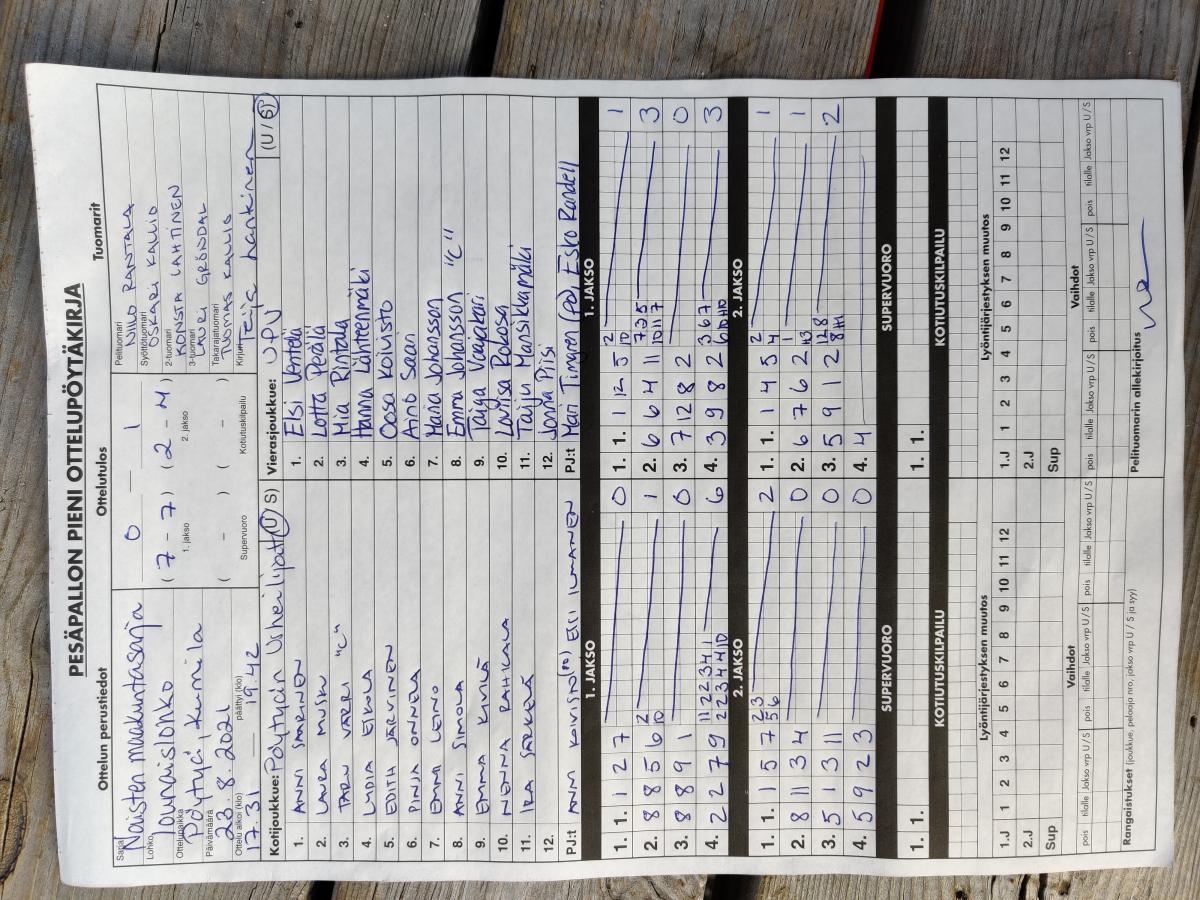 PESÄPALLON PIENI OTTELUPÖYTÄKIRJA
Ottelun perustiedot
Sarja Naisten maakuntasarja
Lohko Lounaislohko
Ottelupaikka Pöytyä, Kumila
Päivämäärä 23.8.2021
Ottelu alkoi (klo) 17.31 päättyi (klo) 19.42
Ottelutulos
0 – 1
(7 – 7) (2 – 4)
1. jakso 2. jakso
( – ) ( – )
Supervuoro Kotiutuskilpailu
Tuomarit
Pelituomari NIILO RANTALA
Syöttötuomari OSKARI KALLIO
2-tuomari KONSTA LAHTINEN
3-tuomari LAURI GRÖNDAL
Takarajatuomari TUOMAS KALLIO
Kirjuri Teija Lankinen
Kotijoukkue: Pöytyän Urheilijat (U / S)
1. ANNI SAARINEN
2. LAURA MUSKU
3. TARU VÄRRI "C"
4. LYDIA ESKOLA
5. EDITH JÄRVINEN
6. PINJA ONNELA
7. EMMI LEINO
8. ANNI SIMOLA
9. EMMA KIVILÄ
10. NENNA RAHKALA
11. IRA SÄRKELÄ
12.
PJ:t ANM KOVISIN (PO) ELLI ILMANEN
Vierasjoukkue: UPV (U / S)
1. Elsi Ventelä
2. Lotta Perälä
3. Mia Rintala
4. Hanna Lähteenmäki
5. Oosa Koivunsto
6. Aino Saari
7. Maria Johansson
8. Emma Johansson "C"
9. Taiga Varjakari
10. Loviisa Rokosa
11. Taiju Mansikkamäki
12. Jonna Piisi
PJ:t Mari Timgren (po), Esko Randell
1. JAKSO
1. 1. 1 2 7 0
2. 8 8 5 6 2 10 1
3. 8 8 9 1 0
4. 2 2 7 9 11 22 34 1 22 34 4 10 6
1. JAKSO
1. 1. 1 12 5 2 10 1
2. 6 6 4 11 7 3 5 10 11 7 3
3. 7 12 8 2 0
4. 3 9 8 2 3 6 7 6 10 H10 3
2. JAKSO
1. 1. 1 5 7 2 3 5 6 2
2. 8 11 3 4 0
3. 5 1 3 11 0
4. 5 9 2 3 0
2. JAKSO
1. 1. 1 4 5 2 4 1
2. 6 7 6 2 1 H3 1
3. 5 9 1 2 12 8 8 H1 2
4. 4
SUPERVUORO
1. 1.
SUPERVUORO
1. 1.
KOTIUTUSKILPAILU
KOTIUTUSKILPAILU
Lyöntijärjestyksen muutos
1.J 1 2 3 4 5 6 7 8 9 10 11 12
2.J
Sup
Lyöntijärjestyksen muutos
1.J 1 2 3 4 5 6 7 8 9 10 11 12
2.J
Sup
Vaihdot
pois tilalle Jakso vrp U / S pois tilalle Jakso vrp U / S pois tilalle Jakso vrp U / S
Vaihdot
pois tilalle Jakso vrp U / S pois tilalle Jakso vrp U / S pois tilalle Jakso vrp U / S
Rangaistukset (joukkue, pelaaja nro, jakso vrp U / S ja syy)
Pelituomarin allekirjoitus